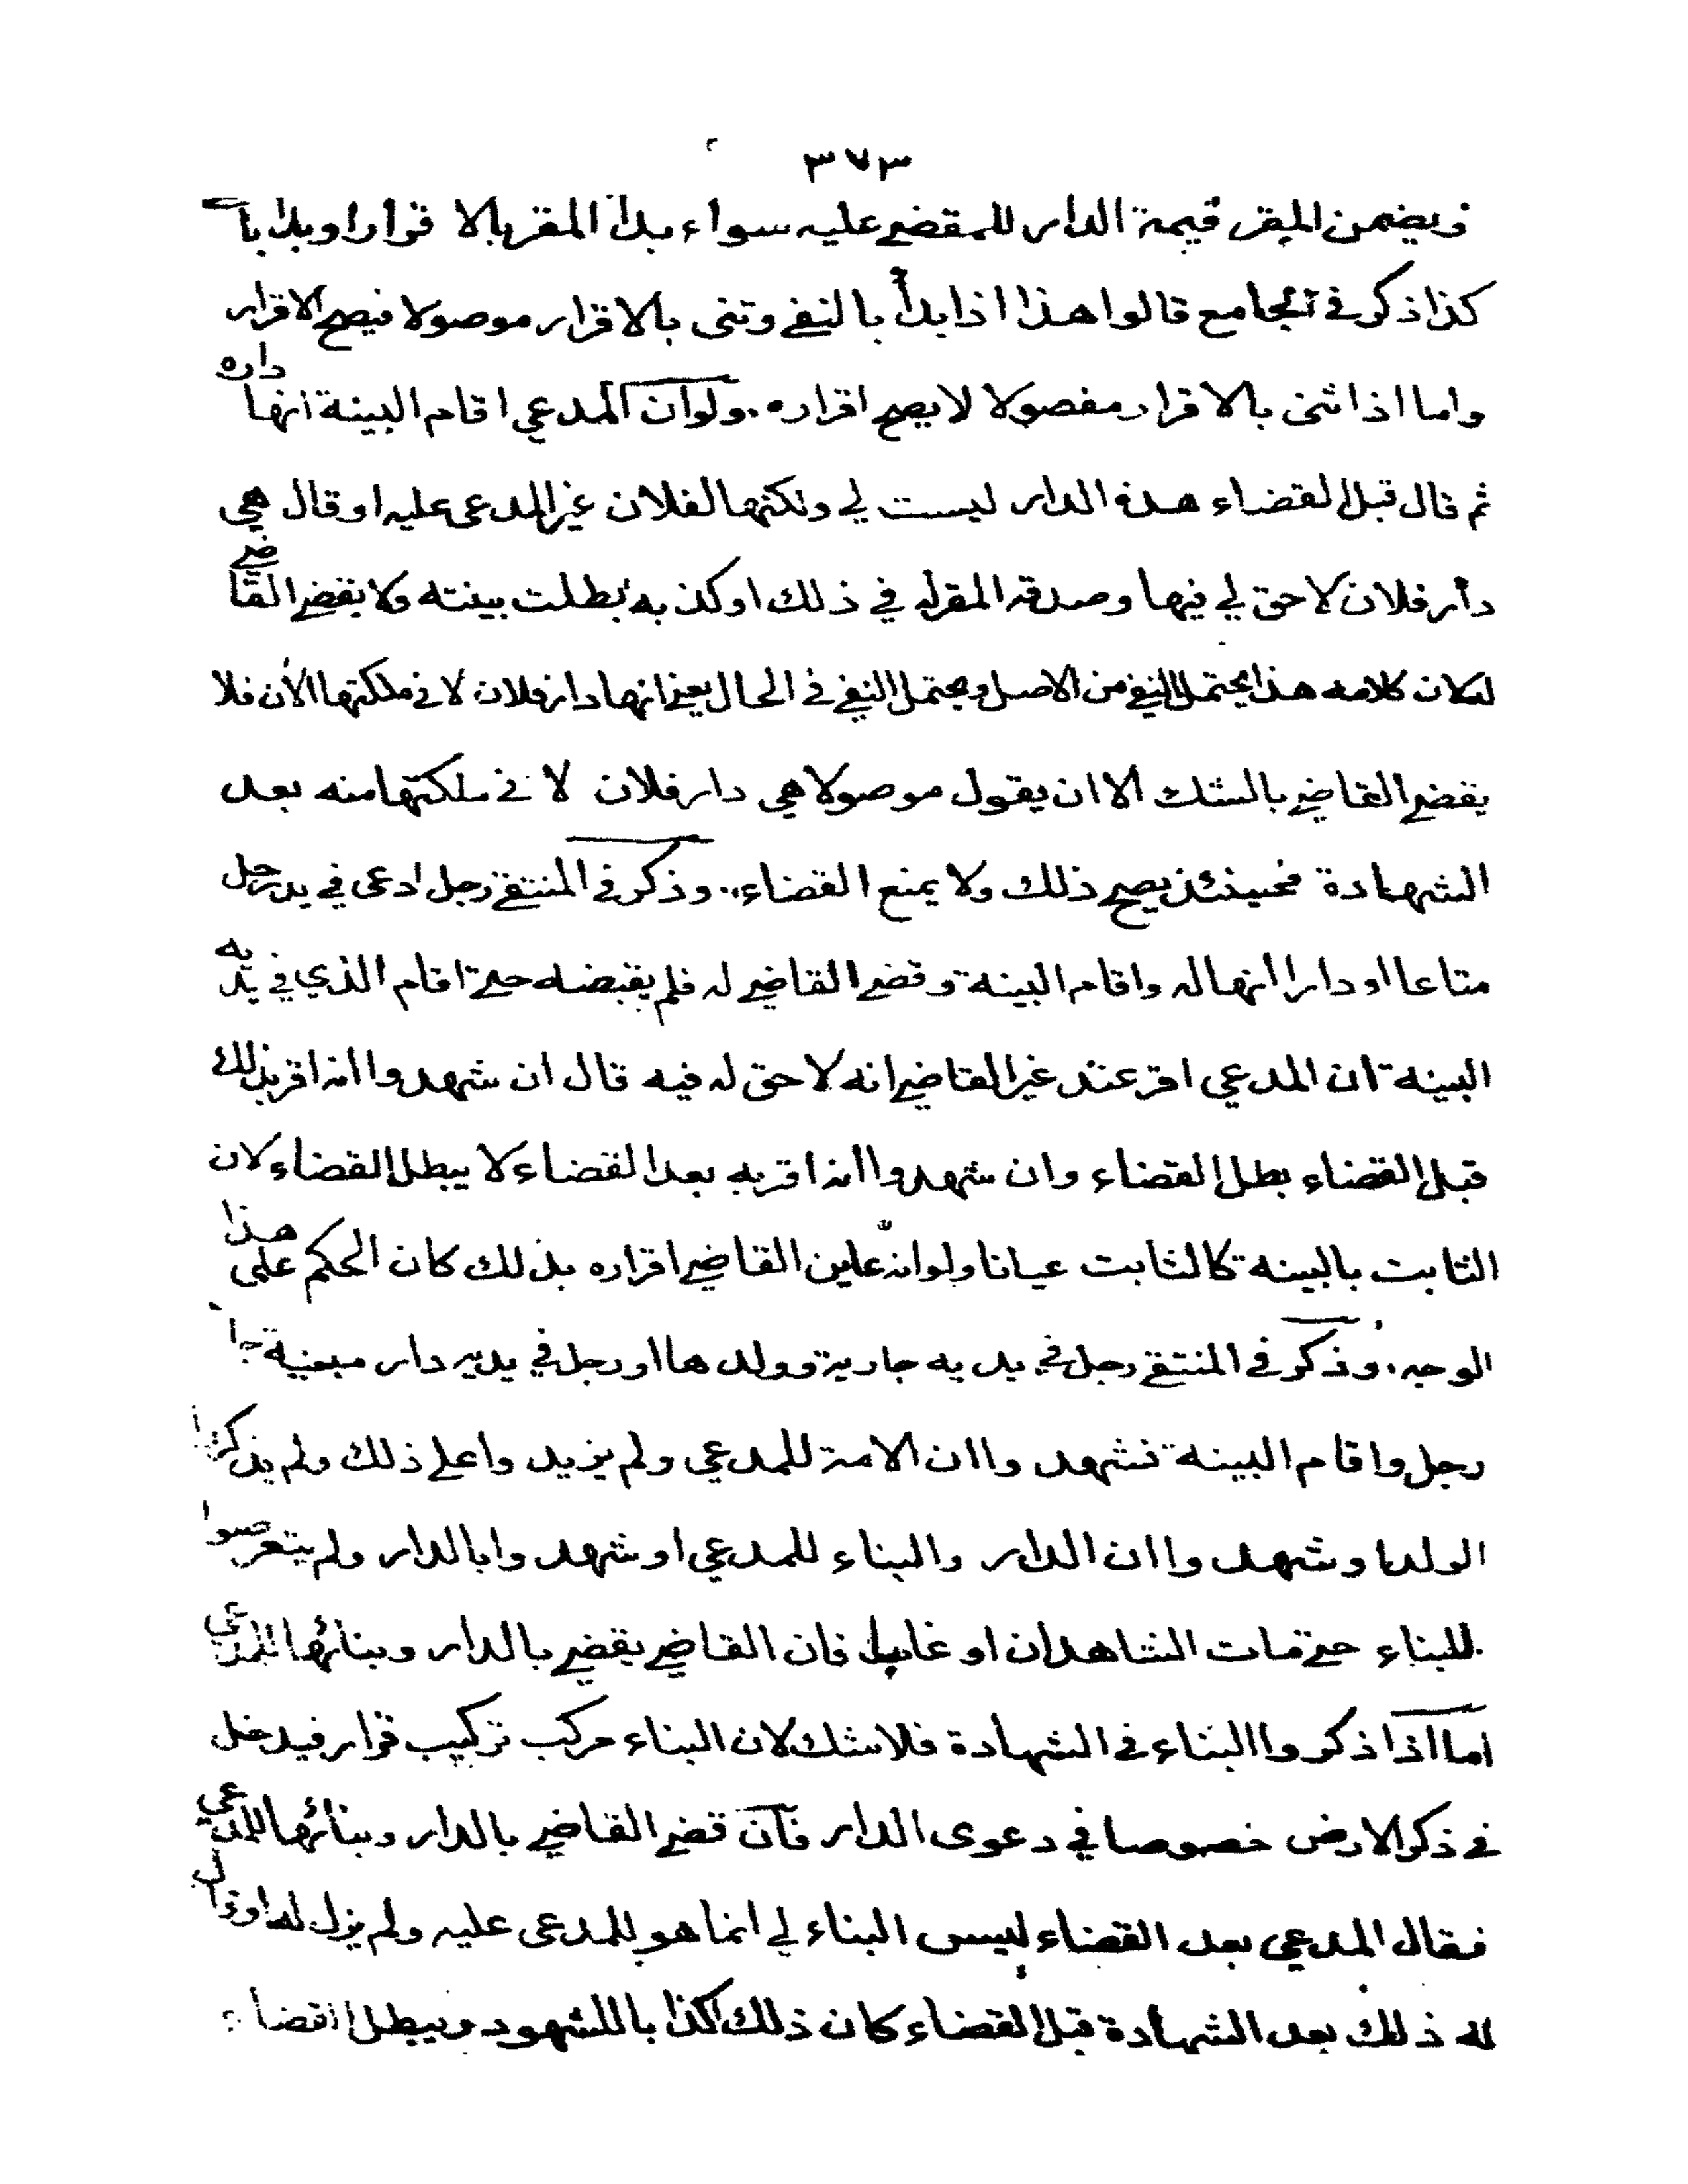 ٣٧٣
ويضمن المقر قيمة الدار للمقضي عليه سواء بدأ المقر بالاقرار او بدأ با
كذا ذكر في الجامع قالوا هذا اذا بدأ بالنفي وثنى بالاقرار موصولا فيصح الاقرار
واما اذا ثنى بالاقرار مفصولا لا يصح اقراره . ولو ان المدعي اقام البينة انها داره
ثم قال قبل القضاء هذه الدار ليست لي ولكنها لفلان غير المدعى عليه او قال هي
دار فلان لا حق لي فيها وصدقه المقر له في ذلك او كذبه بطلت بينته ولا يقضي القاضي
لمكان كلامه هذا يحتمل النفي من الاصل ويحتمل النفي في الحال يعني انها دار فلان لاني ملكتها الآن فلا
يقضي القاضي بالشك الا ان يقول موصولا هي دار فلان لاني ملكتها منه بعد
الشهادة فحينئذ يصح ذلك ولا يمنع القضاء .. وذكر في المنتقى رجل ادعى في يد رجل
متاعا او دارا انها له واقام البينة وقضى القاضي له فلم يقبضه حتى اقام الذي في يديه
البينة ان المدعي اقر عند غير القاضي انه لا حق له فيه قال ان شهدوا انه اقر بذلك
قبل القضاء بطل القضاء وان شهدوا انه اقر به بعد القضاء لا يبطل القضاء لان
الثابت بالبينة كالثابت عيانا ولو انه عاين القاضي اقراره بذلك كان الحكم على هذا
الوجه . وذكر في المنتقى رجل في يديه جارية وولدها او رجل في يديه دار مبنية جا
رجل واقام البينة فشهدوا ان الامة للمدعي ولم يزيدوا على ذلك ولم يذكروا
الولد او شهدوا ان الدار والبناء للمدعي او شهدوا بالدار ولم يتعرضوا
للبناء حتى مات الشاهدان او غابا فان القاضي يقضي بالدار وبنائها للمدعي
اما اذا ذكروا البناء في الشهادة فلا شك لان البناء مركب تركيب قرار فيدخل
في ذكر الارض خصوصا في دعوى الدار فان قضى القاضي بالدار وبنائها للمدعي
فقال المدعي بعد القضاء ليس البناء لي انما هو للمدعى عليه ولم يزل له او قال
له ذلك بعد الشهادة قبل القضاء كان ذلك اكذابا للشهود ويبطل القضاء